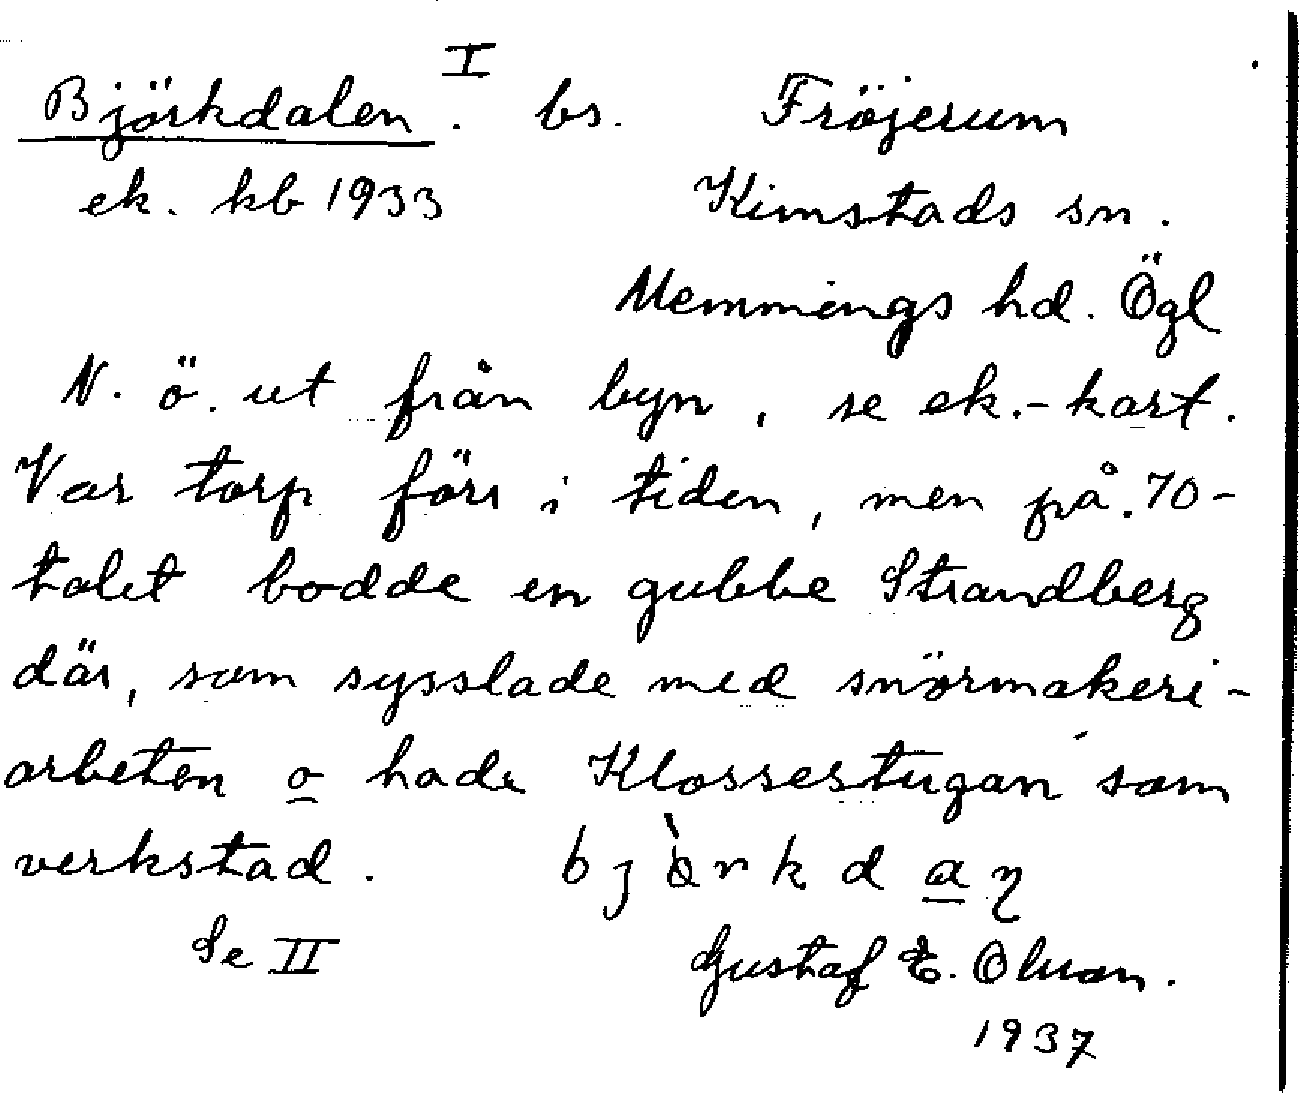 Björkdalen I. bs. Fröjerum
ek. kb 1933 Kimstads sn.
Memmings hd. Ögl
N. ö. ut från byn, se ek.-kart.
Var torp förr i tiden, men på 70-
talet bodde en gubbe Strandberg
där, som sysslade med snörmakeri-
arbeten o hade Klossestugan som
verkstad. bjὸrkdaη
Se II Gustaf E. Olsson.
1937